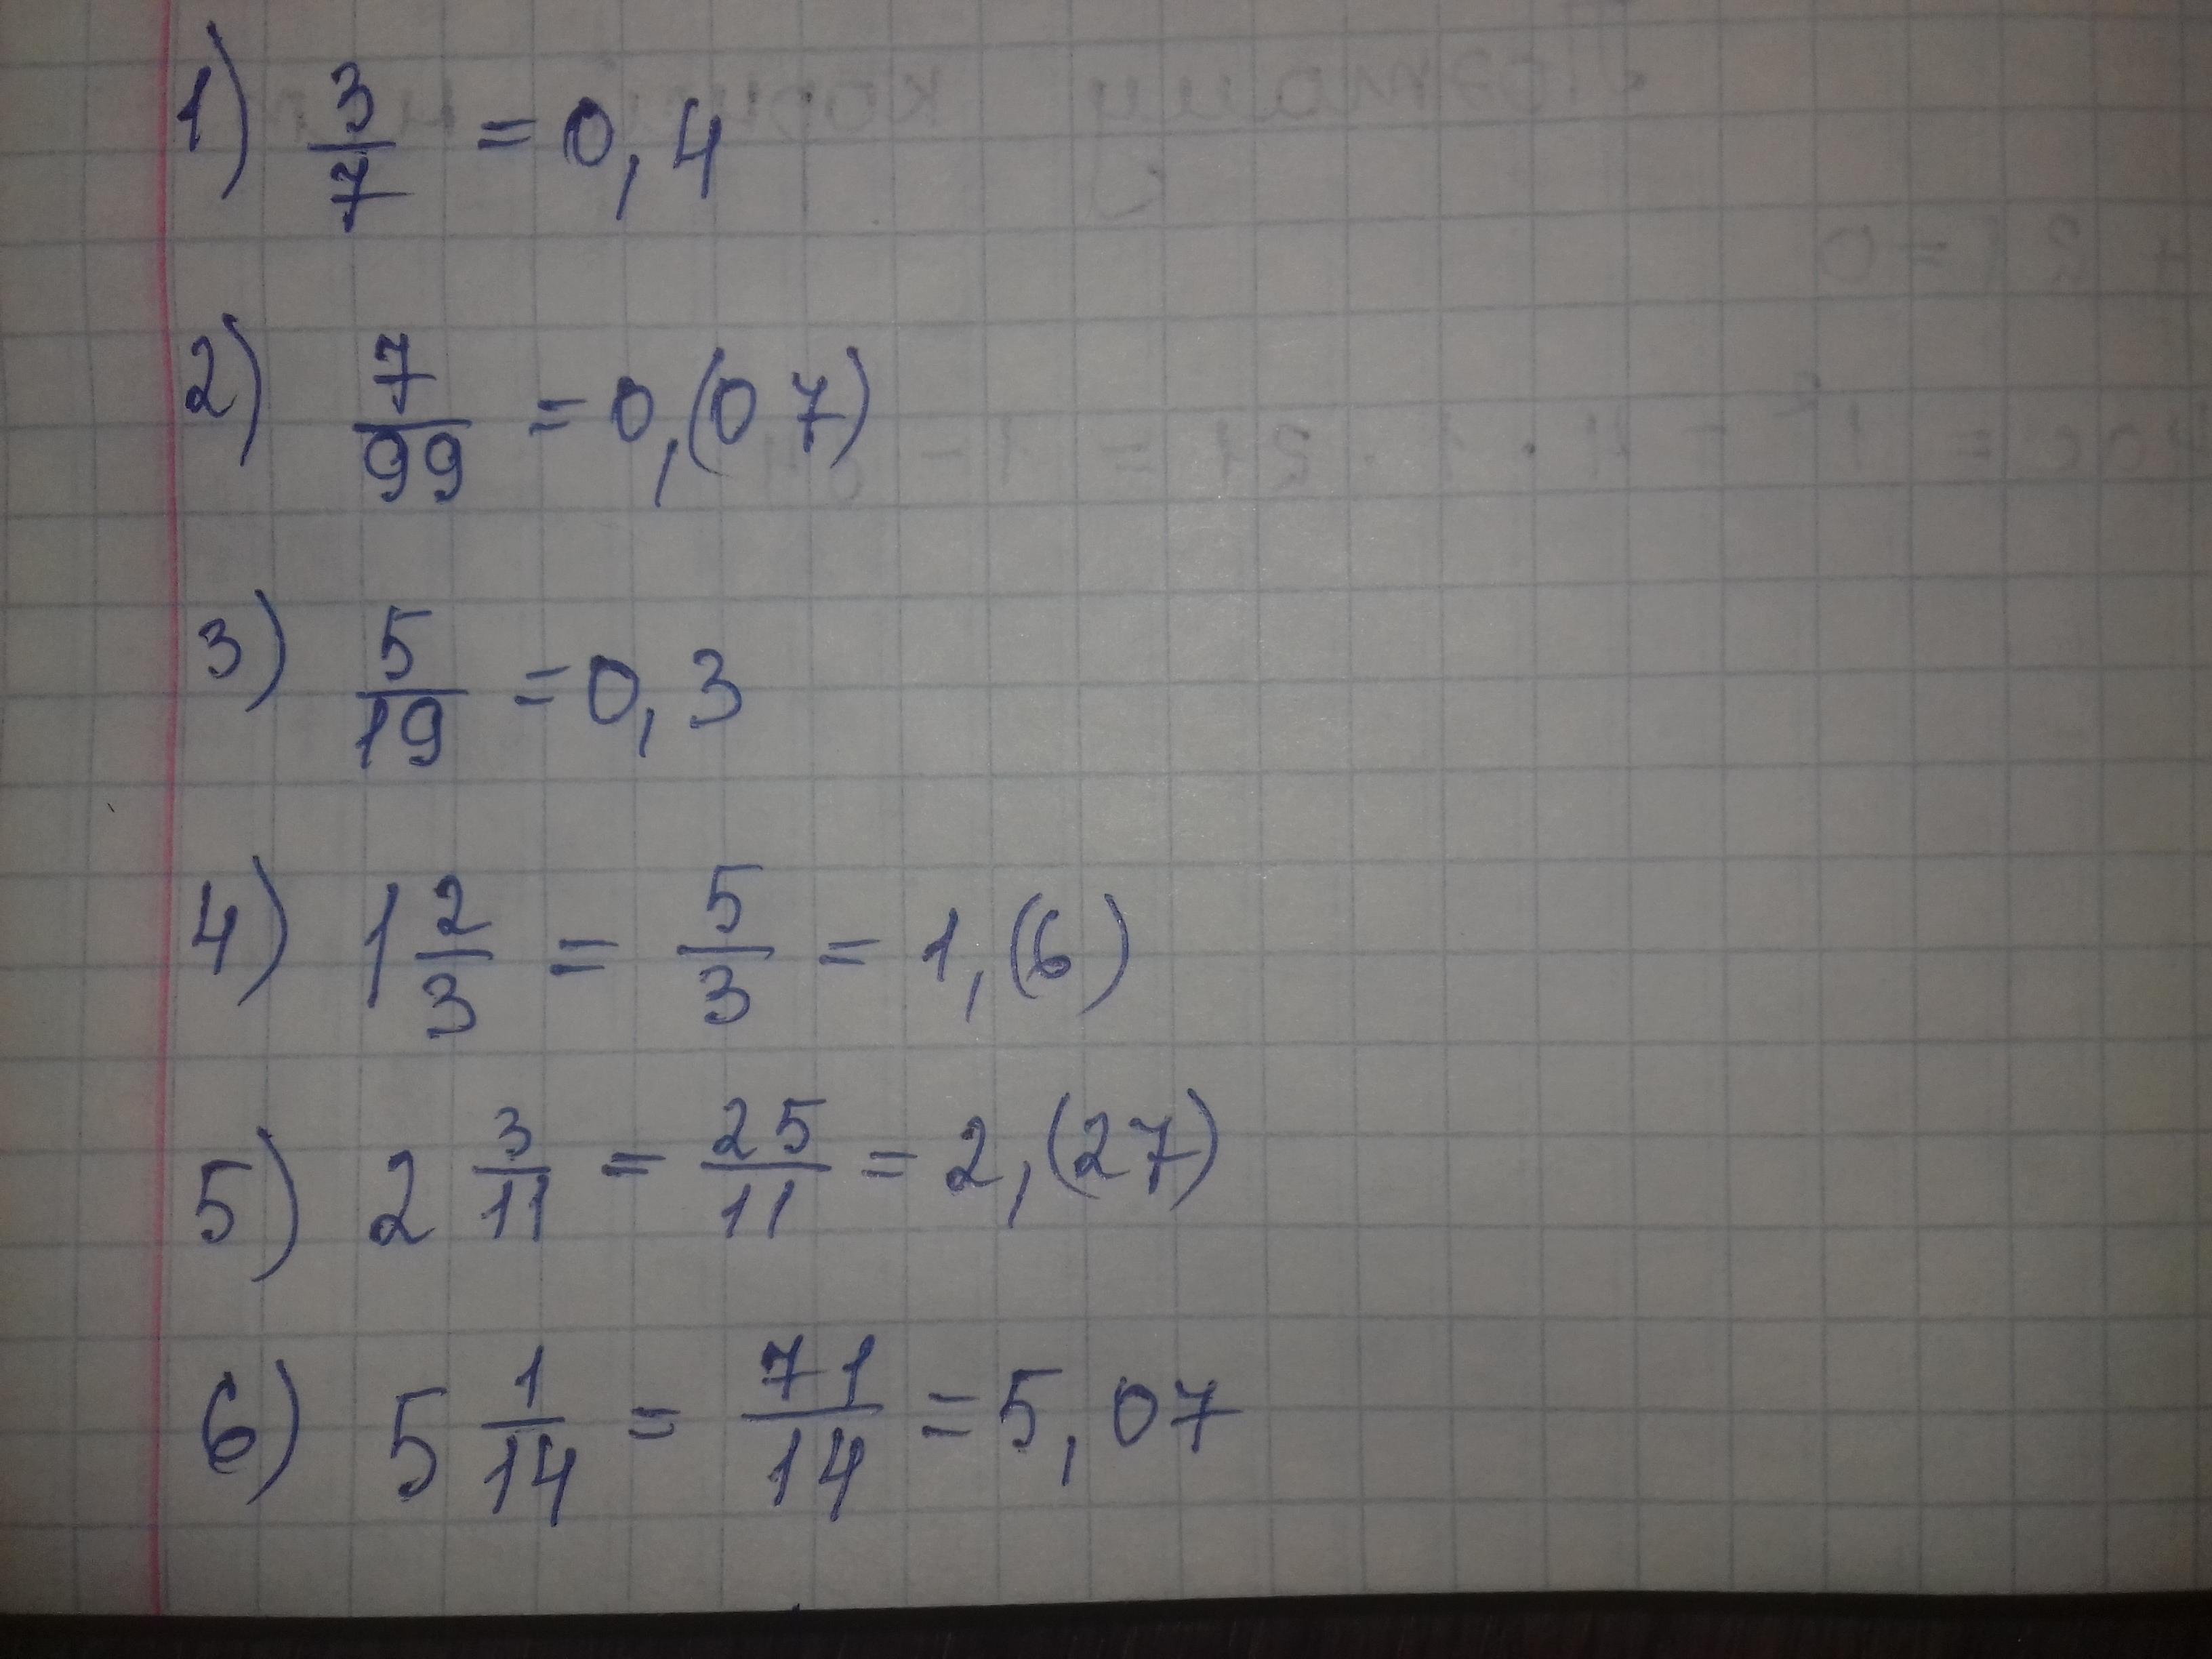 1) 3/7 = 0,4
2) 7/99 = 0,(07)
3) 5/19 = 0,3
4) 1 2/3 = 5/3 = 1,(6)
5) 2 3/11 = 25/11 = 2,(27)
6) 5 1/14 = 71/14 = 5,07